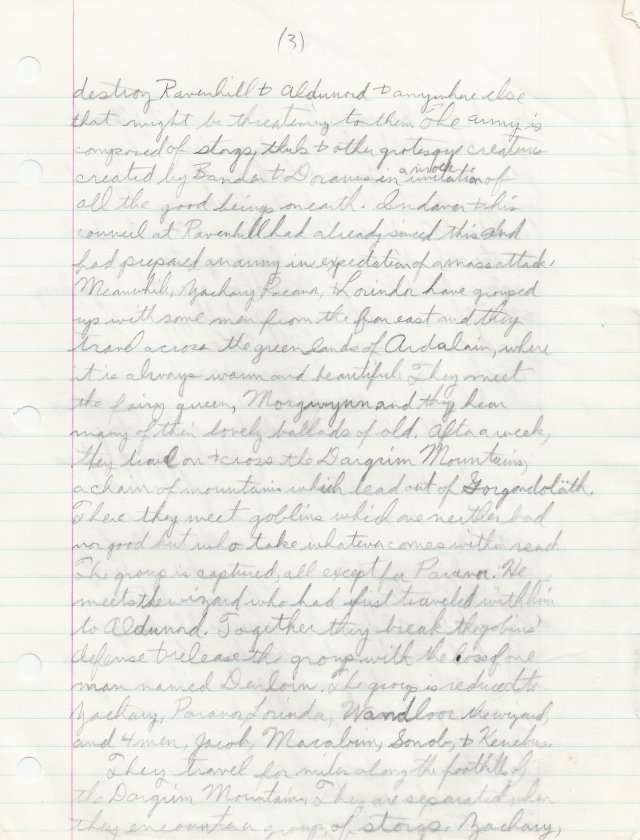 (3)
destroy Ravenhill & Aldunord & anywhere else
that might be threatening to them. The army is
composed of storgs, & other grotesque creatures
created by Bander & Doranus in a mock imitation of
all the good beings on eath. Indavar & his
council at Ravenhill had already sinced this and
had prepared an army in expectation of a mass attack.
Meanwhile, Zachary, Paranor, & Lorinda have grouped
up with some men from the far east and they
travel across the green lands of Ardalain, where
it is always warm and beautiful. They meet
the fairy queen, Morgwynn and they hear
many of their lovely ballads of old. After a week,
they travel on & cross the Dargrim Mountains,
a chain of mountains which lead out of Gorgondoläth.
There they meet goblins which are neither bad
nor good but who take whatever comes within reach.
The group is captured, all except for Paranor. He
meets the wizard who had first traveled with him
to Aldunord. Together they break the goblins'
defense & release the group with the loss of one
man named Denlorn. The group is reduced to
Zachary, Paranor, Lorinda, Wandloor the wizard,
and 4 men, Jacob, Macabrim, Sonob, &
They travel for miles along the foothill of
the Dargrim Mountains. They are separated when
they encounter a group of storgs. Zachary,